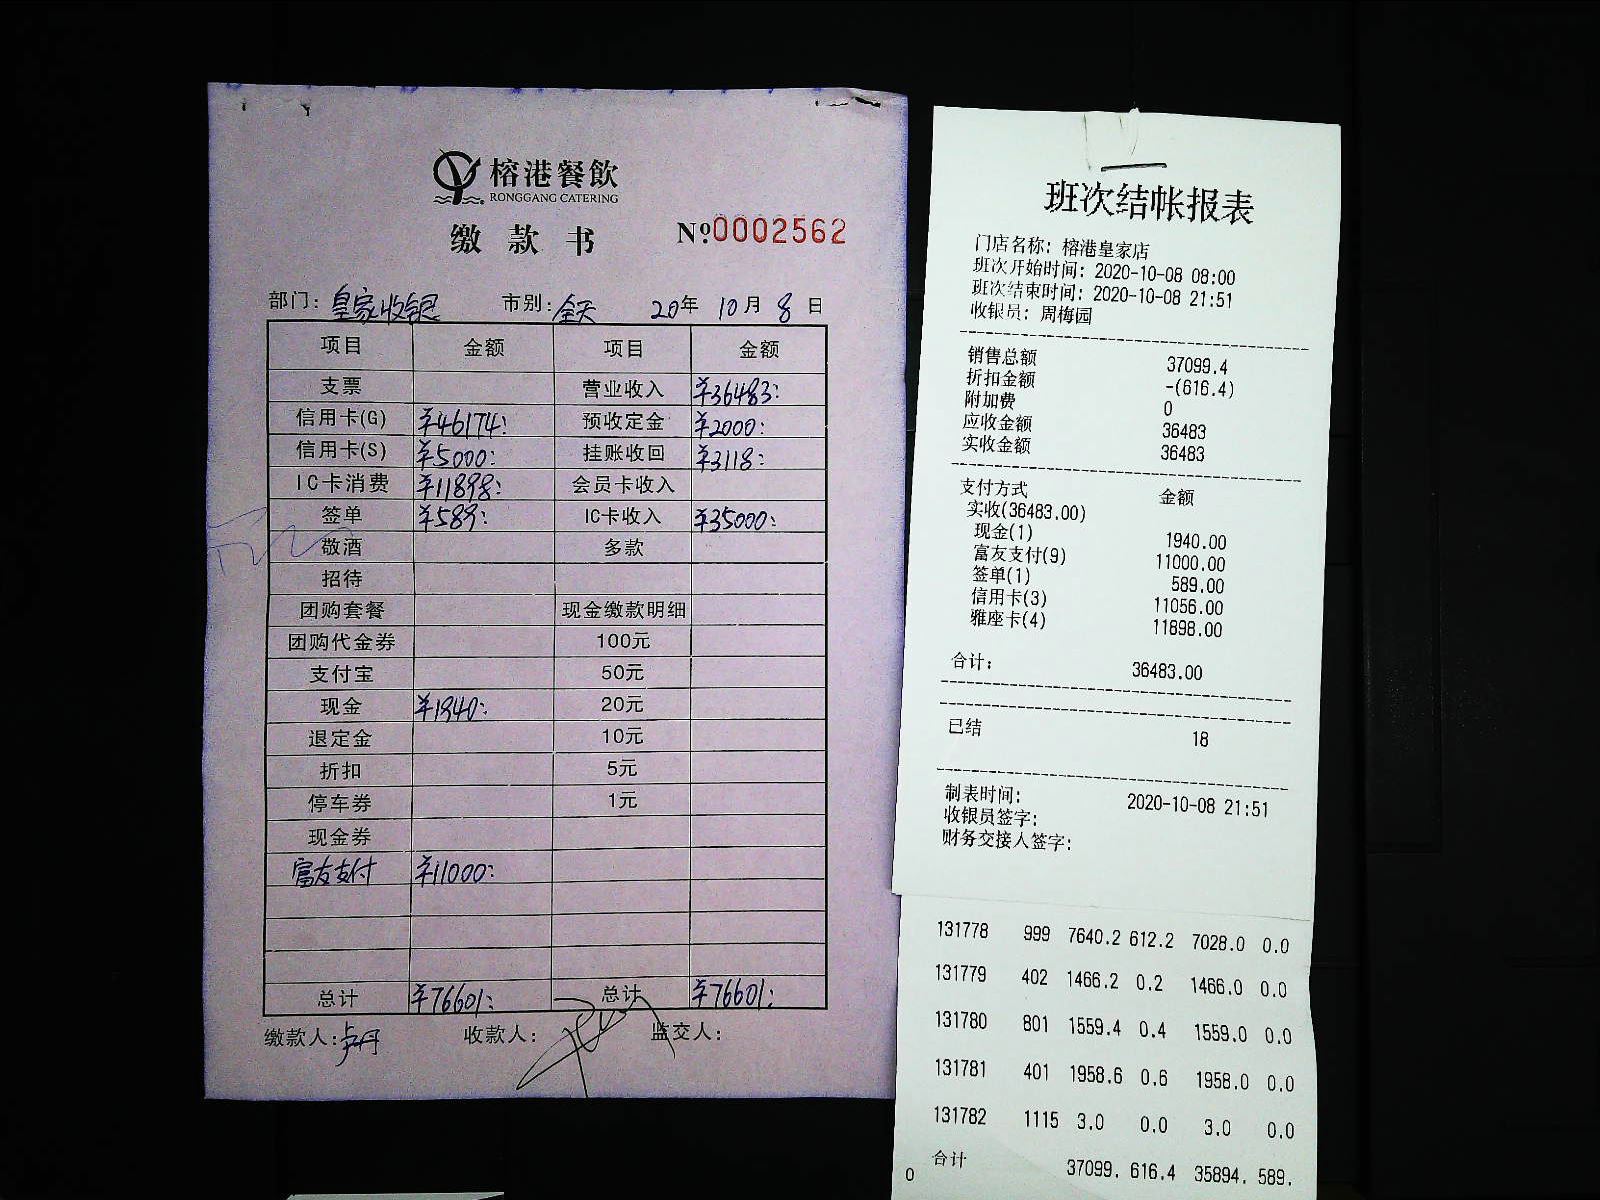 榕港餐飲
RONGGANG CATERING
缴款书
№0002562
部门: 皇家收银 市别: 全天 20年 10月 8日
项目 金额 项目 金额
支票 营业收入 ¥36483:
信用卡(G) ¥46174: 预收定金 ¥2000:
信用卡(S) ¥5000: 挂账收回 ¥3118:
IC卡消费 ¥11898: 会员卡收入
签单 ¥589: IC卡收入 ¥35000:
敬酒 多款
招待
团购套餐 现金缴款明细
团购代金券 100元
支付宝 50元
现金 ¥1940: 20元
退定金 10元
折扣 5元
停车券 1元
现金券
富友支付 ¥11000:
总计 ¥76601: 总计 ¥76601:
缴款人: 卢丹 收款人: 监交人:
班次结帐报表
门店名称: 榕港皇家店
班次开始时间: 2020-10-08 08:00
班次结束时间: 2020-10-08 21:51
收银员: 周梅园
销售总额 37099.4
折扣金额 -(616.4)
附加费 0
应收金额 36483
实收金额 36483
支付方式 金额
实收(36483.00)
现金(1) 1940.00
富友支付(9) 11000.00
签单(1) 589.00
信用卡(3) 11056.00
雅座卡(4) 11898.00
合计: 36483.00
已结 18
制表时间: 2020-10-08 21:51
收银员签字:
财务交接人签字:
131778 999 7640.2 612.2 7028.0 0.0
131779 402 1466.2 0.2 1466.0 0.0
131780 801 1559.4 0.4 1559.0 0.0
131781 401 1958.6 0.6 1958.0 0.0
131782 1115 3.0 0.0 3.0 0.0
合计 37099. 616.4 35894. 589.
0